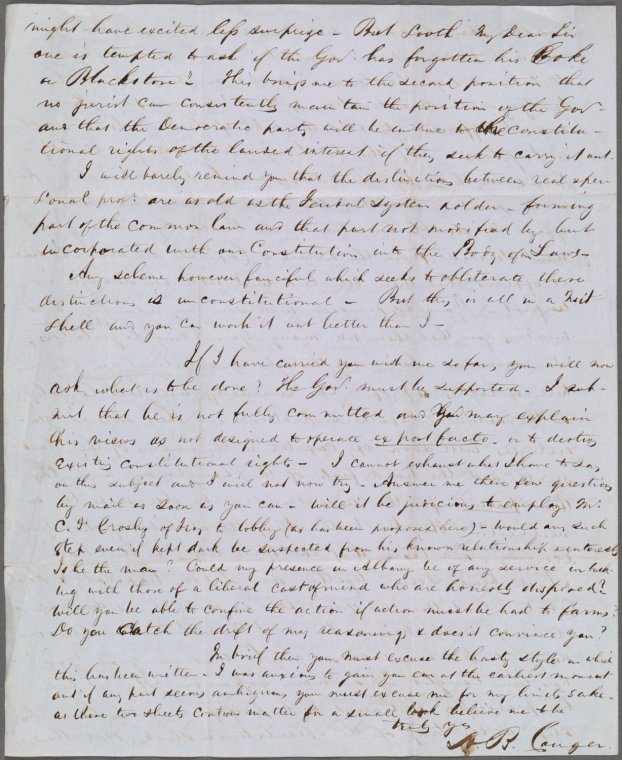 might have excited less surprise – But sooth My Dear Sir
one is tempted to ask if the Gov has forgotten his Coke
or Blackstone? This brings me to the second position that
no jurist can consistently maintain the position of the Gov –
and that the Democratic party will be untrue to the Constitu-
tional rights of the landed interest if they seek to carry it out.
I will barely remind you that the distinctions between real & per-
sonal prop: are as old as the Feudal System & older – forming
part of the common law and that part not modified by but
incorporated with our Constitution into the Body of our Laws –
Any scheme however fanciful which seeks to obliterate these
distinctions is unconstitutional – But this is all in a nut
shell and you can work it out better than I –
If I have carried you with me so far, you will now
ask what is to be done? The Gov must be supported – I sub-
mit that he is not fully committed and you may explain
his views as not designed to operate ex post facto – or to destroy
existing constitutional rights – I cannot exhaust what I have to say
on this subject and I will not now try – Answer me these few questions
by mail as soon as you can – will it be judicious to employ Mr
C. P. Crosby of to lobby (as has been proposed here) – would any such
step even if kept dark be suspected from his known relationship & interests
Is he the man? Could my presence in Albany be of any service in talk-
ing with those of a liberal cast of mind who are honestly disposed?
Will you be able to confine the action if action must be had to farms?
Do you catch the drift of my reasoning & does it convince you?
In brief then you must excuse the hasty style in which
this has been written – I was anxious to gain your ear at the earliest moment
and if any part seems ambiguous you must excuse me for my sake –
as these two sheets contain matter for a small book believe me to be
truly yrs
A. B. Conger